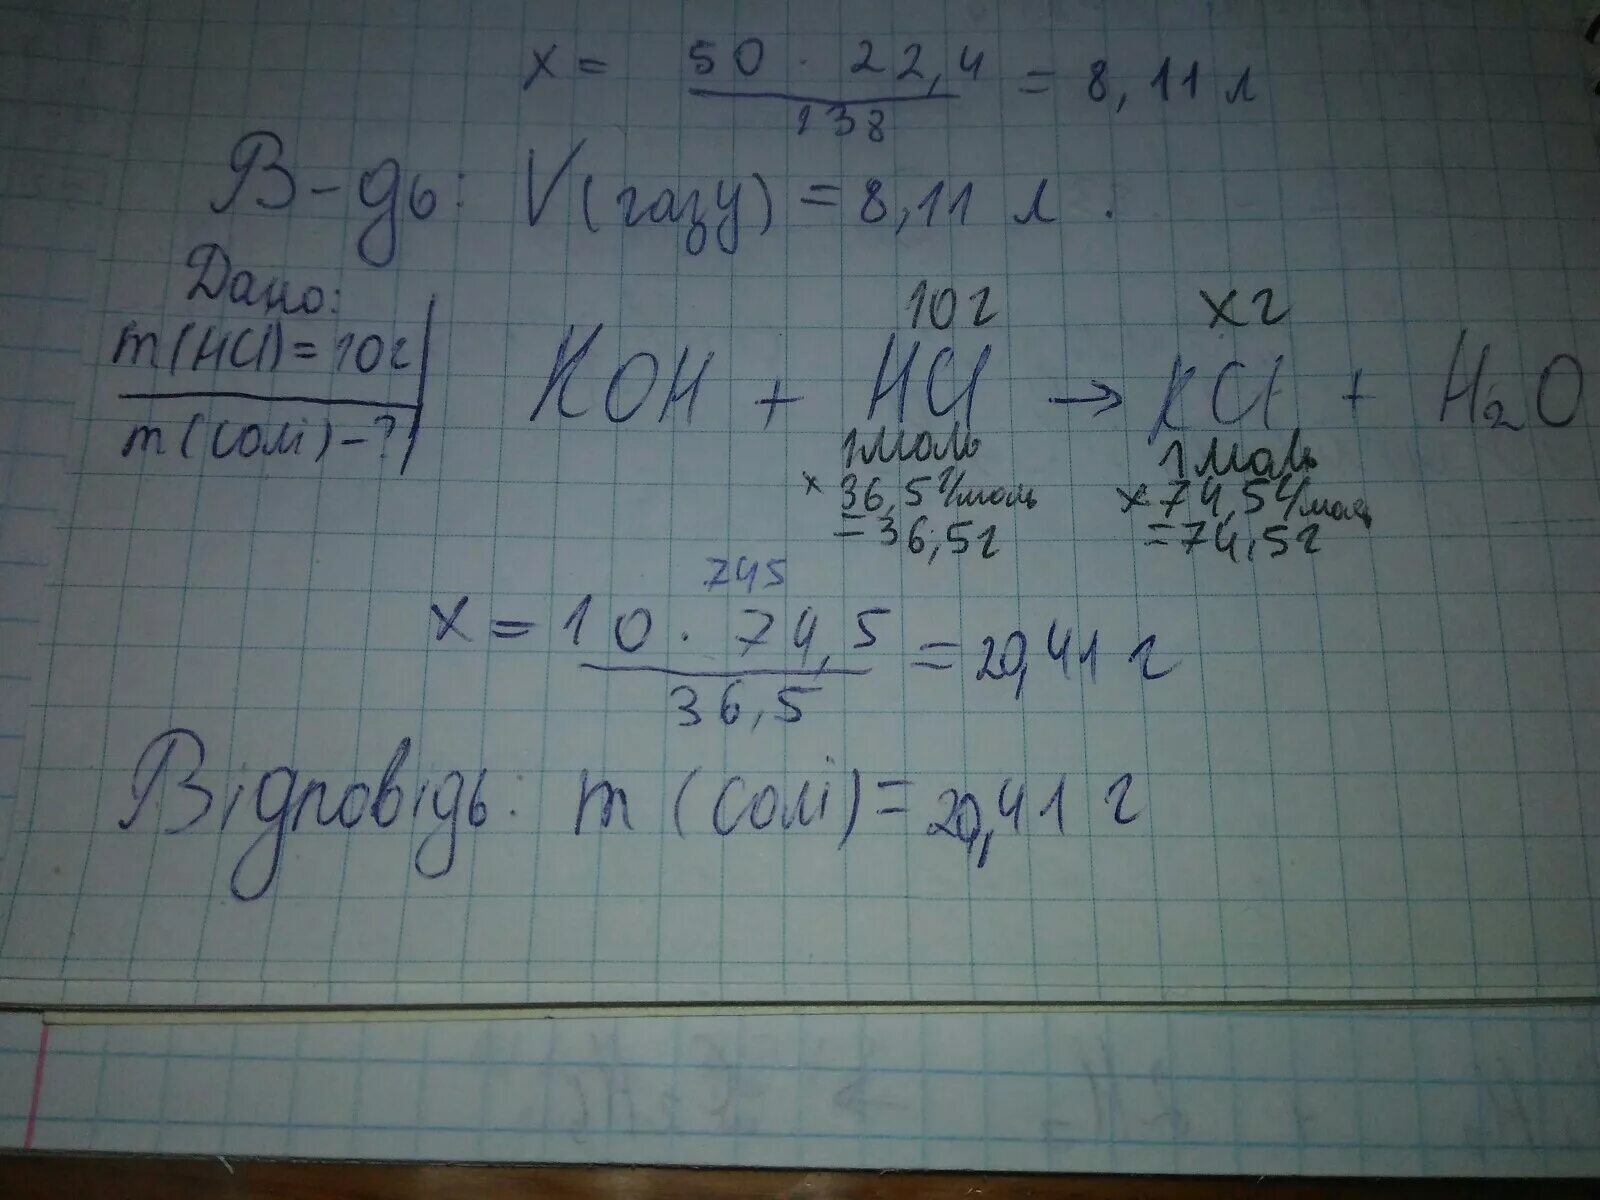 x = 50 · 22,4 / 138 = 8,11 л
В-дь: V(газу) = 8,11 л.
Дано:
m(HCl) = 10г
m(солі) - ?
10г xг
KOH + HCl → KCl + H₂O
1моль 1моль
x 36,5 г/моль x 74,5 г/моль
= 36,5г = 74,5г
745
x = 10 · 74,5 / 36,5 = 20,41 г
Відповідь: m (солі) = 20,41 г